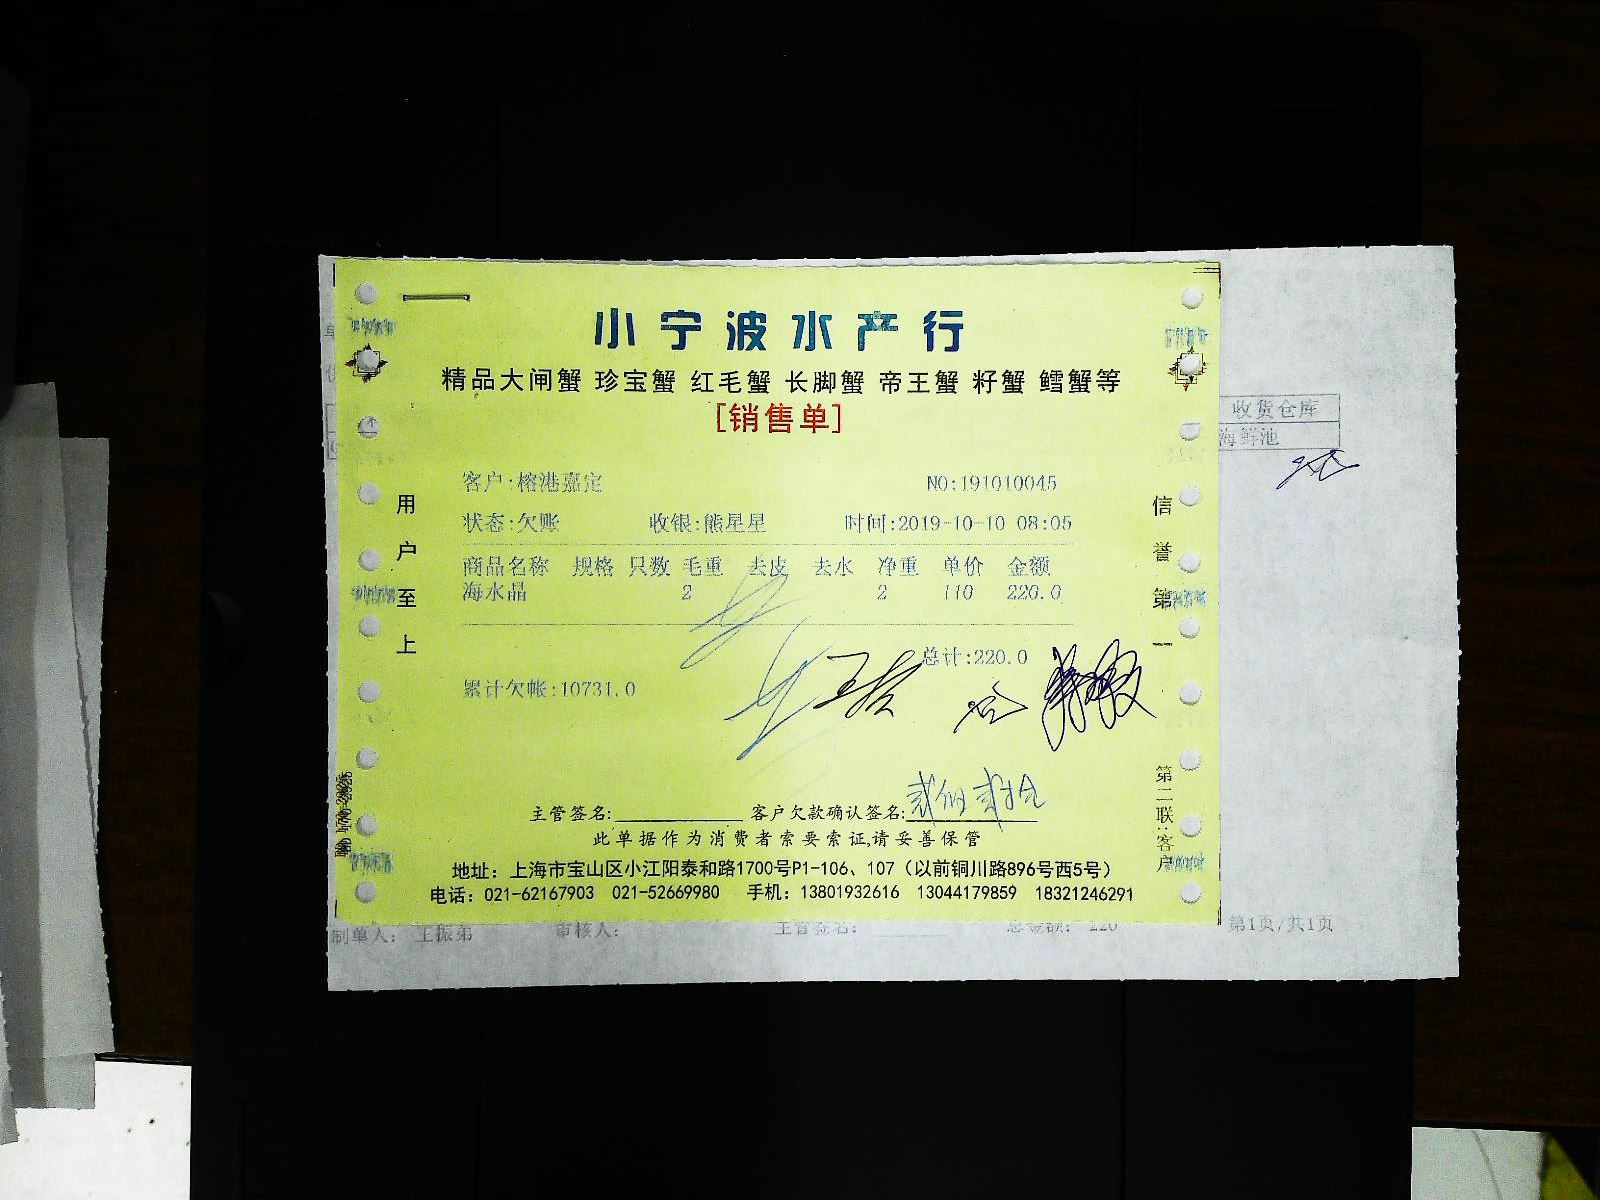 小宁波水产行
精品大闸蟹 珍宝蟹 红毛蟹 长脚蟹 帝王蟹 籽蟹 鳕蟹等
[销售单]
收货仓库
海鲜池
客户:榕港嘉定 NO:191010045
状态:欠账 收银:熊星星 时间:2019-10-10 08:05
商品名称 规格 只数 毛重 去皮 去水 净重 单价 金额
海水晶 2 2 110 220.0
总计:220.0
累计欠帐:10731.0
用户至上
信誉第一
第二联:客户
贰佰贰拾
主管签名: 客户欠款确认签名:
此单据作为消费者索要索证,请妥善保管
地址：上海市宝山区小江阳泰和路1700号P1-106、107（以前铜川路896号西5号）
电话：021-62167903 021-52669980 手机：13801932616 13044179859 18321246291
制单人： 王振弟 审核人： 主管签名： 总金额： 220 第1页/共1页